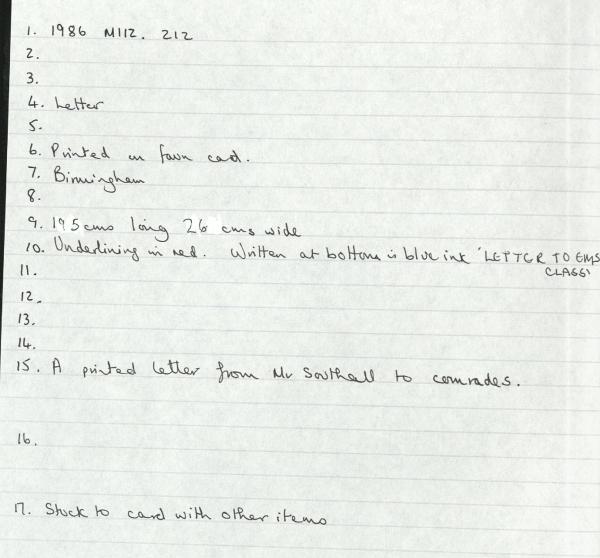 1. 1986 M112. 212
2.
3.
4. Letter
5.
6. Printed on fawn card.
7. Birmingham
8.
9. 19.5 cms long 26 cms wide
10. Underlining in red. Written at bottom in blue ink 'LETTER TO EMS
CLASS'
11.
12.
13.
14.
15. A printed letter from Mr Southall to comrades.
16.
17. Stuck to card with other items